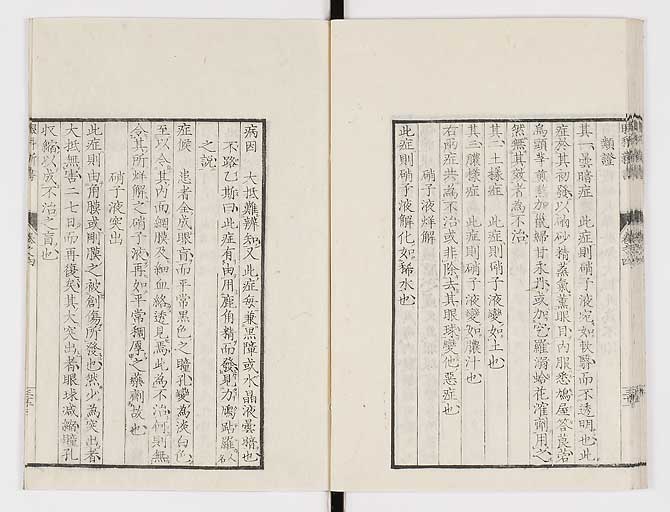 類證
其一曇暗症 此症則硝子液宛如軟膠而不透明也此
症於其初發以硇砂精蒸氣薫眼目內服
烏頭羊躑躅加徽綿甘末丹或加空羅溺蛤花窄劑用之
然無其效者為不治
其二土樣症 此症則硝子液變如土也
其三膿樣症 此症則硝子液變如膿汁也
右兩症共為不治或非除去其眼球變他惡症也
硝子液烊解
此症則硝子液解化如稀水也
病因 大抵難辨知又此症每兼黑障或水晶液曇暗也
不路乙斯曰此症有由用鹿角精而發
之說
症候 患者全成眼盲而平常黑色之瞳孔變為淡白色
至以令其內面網膜及細血絡透見焉此為不治何則無
令其所烊解之硝子液再如平常稠厚之藥劑故也
硝子液突出
此症則由角膜或剛膜之被創傷所發也然少為突出者
大抵無害二七日而再復矣其大突出者眼球減縮瞳孔
收縮以成不治之盲也
眼科新書 卷之四